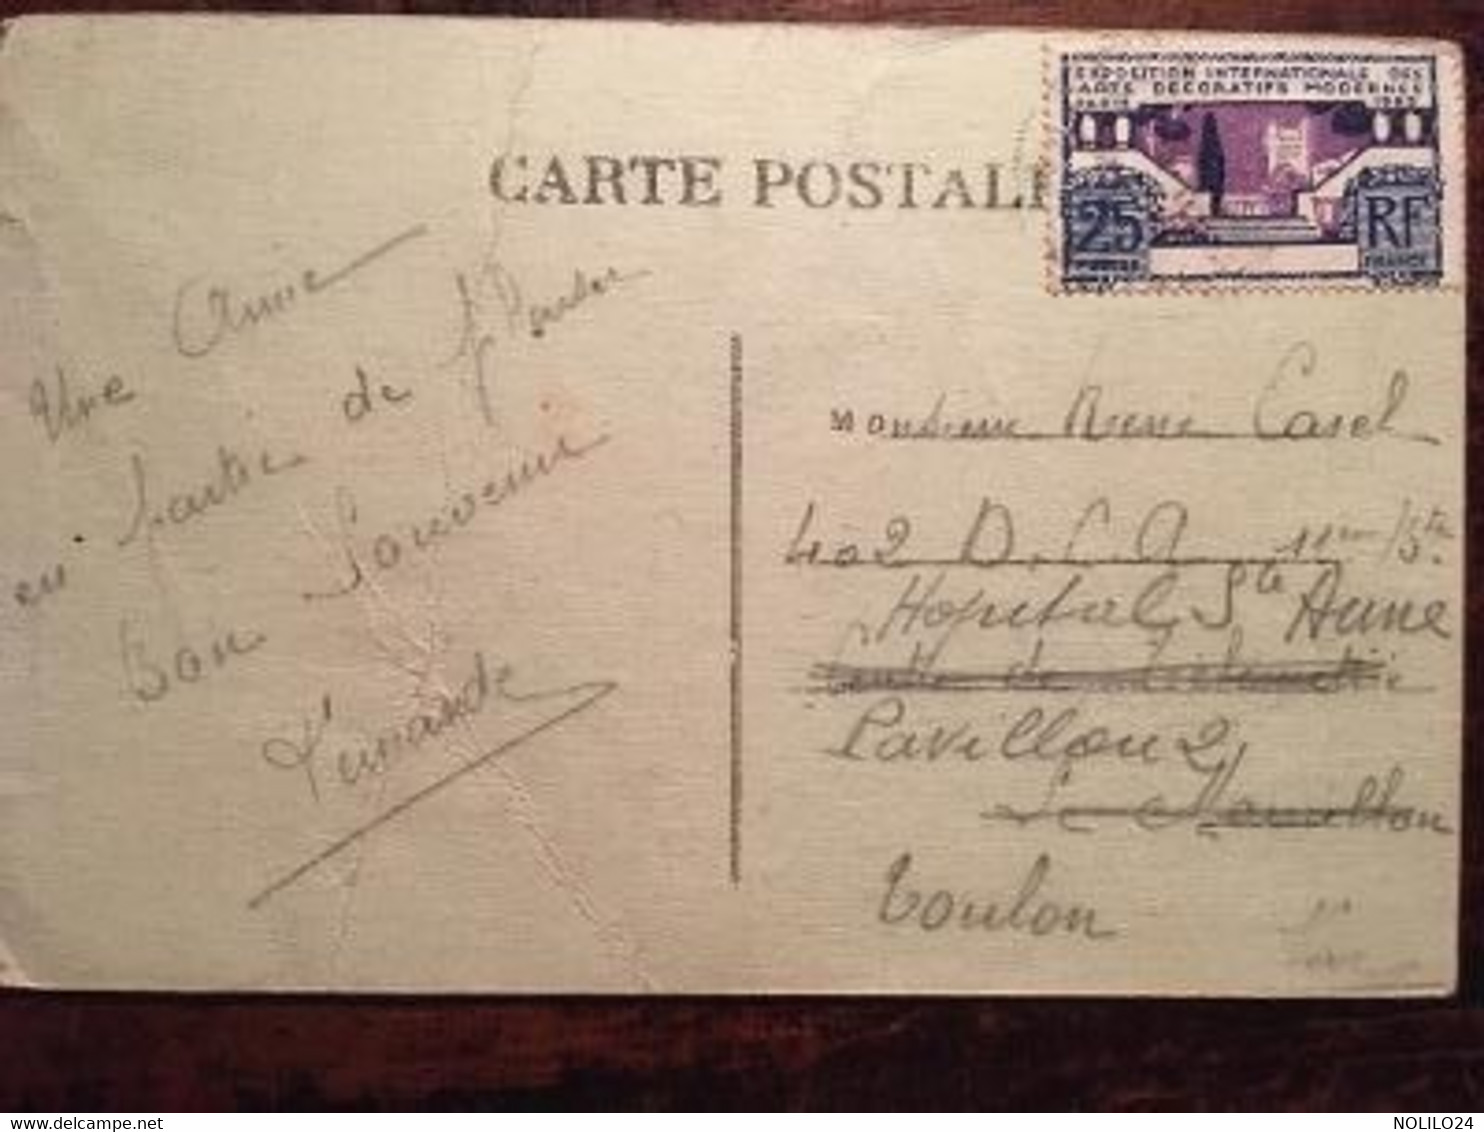 CARTE POSTALE
EXPOSITION INTERNATIONALE DES
ARTS DECORATIFS MODERNES
PARIS 1925
25 RF
POSTES FRANCE
Une Amie
en partie de
Bon Souvenir
Fernande
Monsieur René Casel
402 D.C.A 11em/5te
Hopital Ste Anne
Pavillon 2
Toulon
NOLILO24